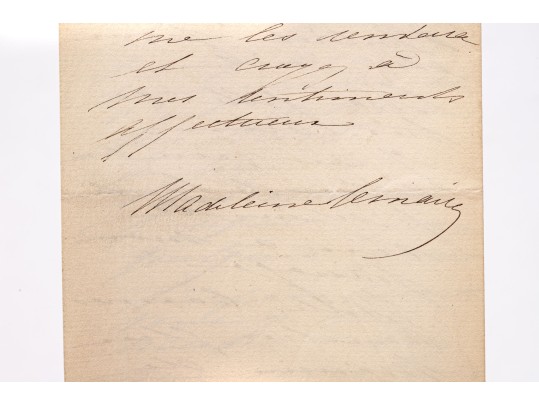 me les rendra
et croyez à
mes sentiments
affectueux
Madeleine Lemaire